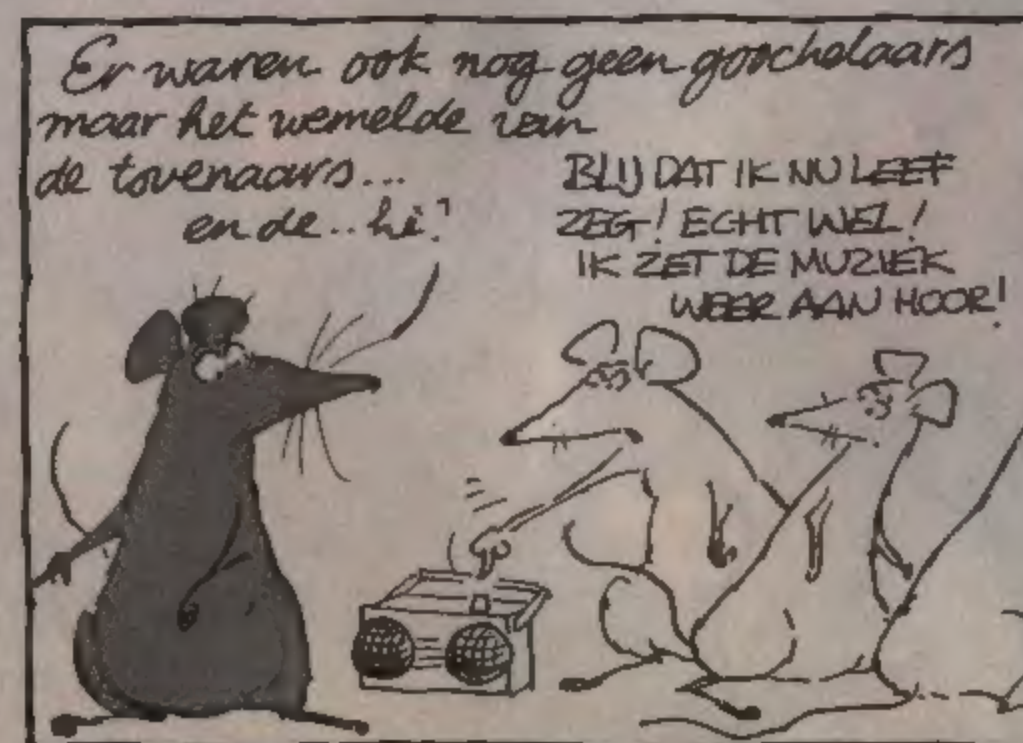 Er waren ook nog geen goochelaars
maar het wemelde van
de tovenaars...
en de.. hè?
BLIJ DAT IK NU LEEF
ZEG! ECHT WEL!
IK ZET DE MUZIEK
WEER AAN HOOR!